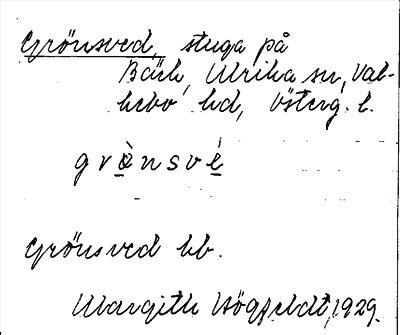 Grönsved, stuga på
Bäck, Ulrika sn, Val-
kebo hd, Österg. l.
grö̀nsvé
Grönsved kb.
Margith Högfeldt, 1929.